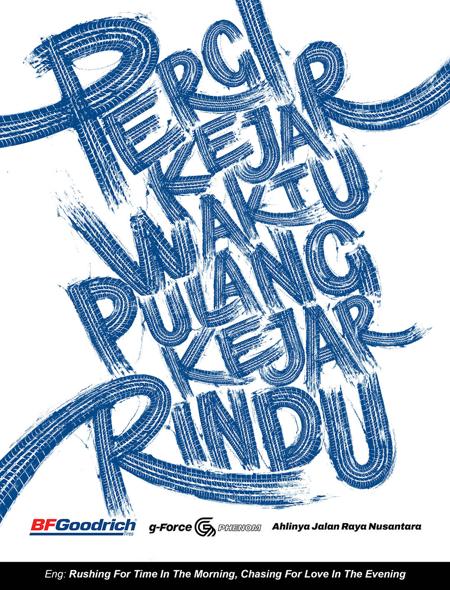 PERGI
KEJAR
WAKTU
PULANG
KEJAR
RINDU
BFGoodrich
Tires
g-Force G PHENOM
Ahlinya Jalan Raya Nusantara
Eng: Rushing For Time In The Morning, Chasing For Love In The Evening